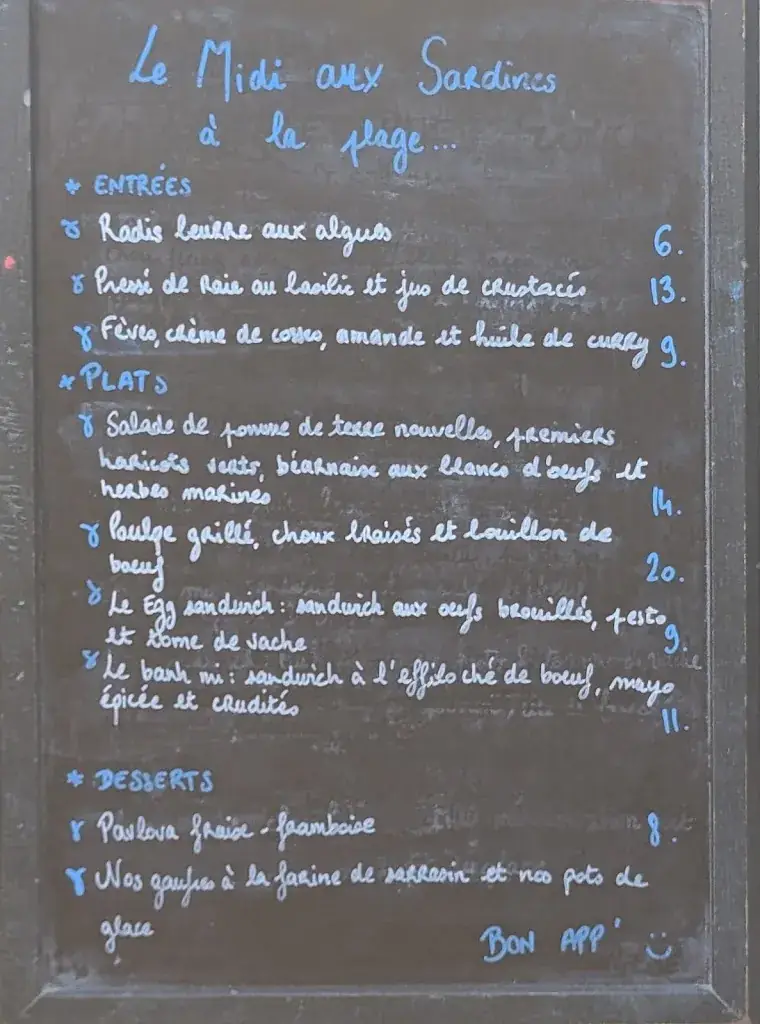 Le Midi aux Sardines
à la plage...
* ENTRÉES
Radis beurre aux algues 6.
Pressé de Raie au basilic et jus de crustacés 13.
Fèves, crème de cosses, amande et huile de curry 9.
* PLATS
Salade de pomme de terre nouvelles, premiers
haricots verts, béarnaise aux blancs d'oeufs et
herbes marines 14.
Poulpe grillé, choux braisés et bouillon de
boeuf 20.
Le Egg sandwich : sandwich aux oeufs brouillés, pesto
et tome de vache 9.
Le banh mi : sandwich à l'effiloché de boeuf, mayo
épicée et crudités 11.
* DESSERTS
Pavlova fraise - framboise 8.
Nos gaufres à la farine de sarrasin et nos pots de
glace
BON APP' :)